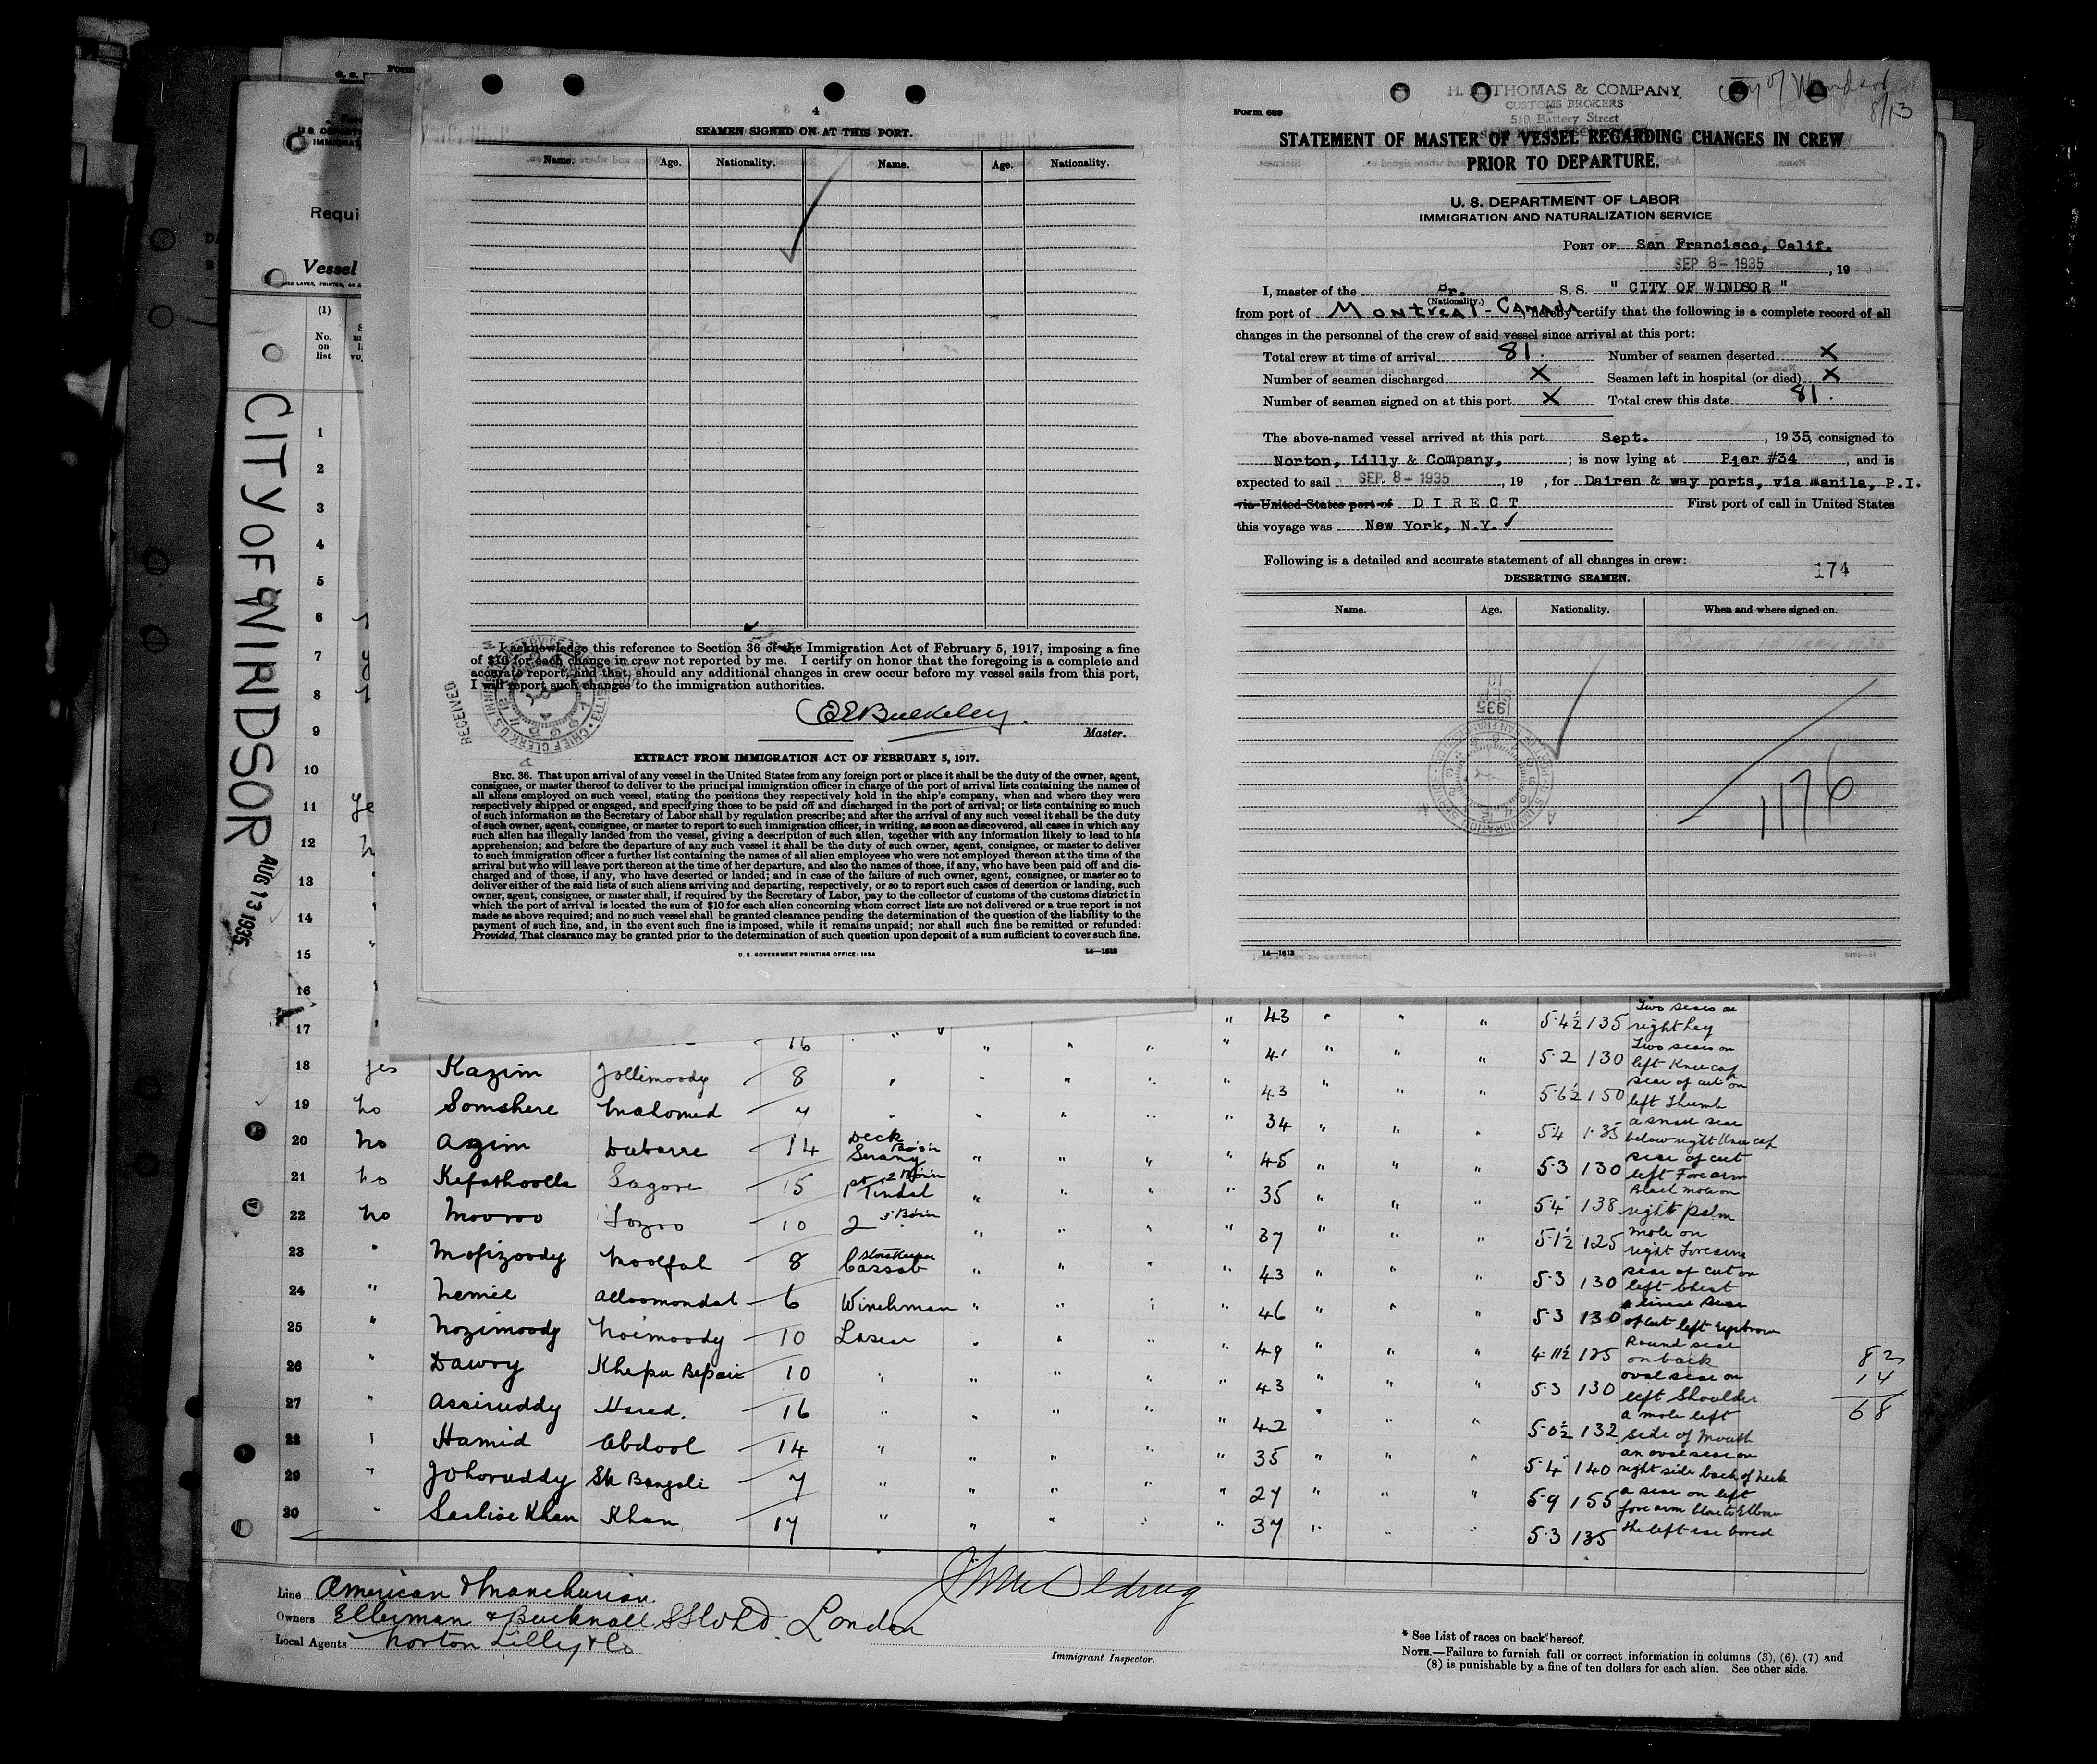 4
SEAMEN SIGNED ON AT THIS PORT.
Name. Age. Nationality. Name. Age. Nationality.
I acknowledge this reference to Section 36 of the Immigration Act of February 5, 1917, imposing a fine
of $10 for each change in crew not reported by me. I certify on honor that the foregoing is a complete and
accurate report, and that, should any additional changes in crew occur before my vessel sails from this port,
I will report such changes to the immigration authorities.
RECEIVED
Master.
EXTRACT FROM IMMIGRATION ACT OF FEBRUARY 5, 1917.
SEC. 36. That upon arrival of any vessel in the United States from any foreign port or place it shall be the duty of the owner, agent,
consignee, or master thereof to deliver to the principal immigration officer in charge of the port of arrival lists containing the names of
all aliens employed on such vessel, stating the positions they respectively hold in the ship's company, when and where they were
respectively shipped or engaged, and specifying those to be paid off and discharged in the port of arrival; or lists containing so much
of such information as the Secretary of Labor shall by regulation prescribe; and after the arrival of any such vessel it shall be the duty
of such owner, agent, consignee, or master to report to such immigration officer, in writing, as soon as discovered, all cases in which any
such alien has illegally landed from the vessel, giving a description of such alien, together with any information likely to lead to his
apprehension; and before the departure of any such vessel it shall be the duty of such owner, agent, consignee, or master to deliver
to such immigration officer a further list containing the names of all alien employees who were not employed thereon at the time of the
arrival but who will leave port thereon at the time of her departure, and also the names of those, if any, who have been paid off and dis-
charged and of those, if any, who have deserted or landed; and in case of the failure of such owner, agent, consignee, or master so to
deliver either of the said lists of such aliens arriving and departing, respectively, or so to report such cases of desertion or landing, such
owner, agent, consignee, or master shall, if required by the Secretary of Labor, pay to the collector of customs of the customs district in
which the port of arrival is located the sum of $10 for each alien concerning whom correct lists are not delivered or a true report is not
made as above required; and no such vessel shall be granted clearance pending the determination of the question of the liability to the
payment of such fine, and, in the event such fine is imposed, while it remains unpaid; nor shall such fine be remitted or refunded:
Provided, That clearance may be granted prior to the determination of such question upon deposit of a sum sufficient to cover such fine.
U. S. GOVERNMENT PRINTING OFFICE: 1934
14—1613
THOMAS & COMPANY
CUSTOMS BROKERS
510 Battery Street
City of Windsor
8/13
Form 689
STATEMENT OF MASTER OF VESSEL REGARDING CHANGES IN CREW
PRIOR TO DEPARTURE.
U. S. DEPARTMENT OF LABOR
IMMIGRATION AND NATURALIZATION SERVICE
PORT OF San Francisco, Calif.
SEP 8 - 1935, 19
I, master of the Br. S. S. " CITY OF WINDSOR "
(Nationality.)
from port of Montreal - Canada, hereby certify that the following is a complete record of all
changes in the personnel of the crew of said vessel since arrival at this port:
Total crew at time of arrival 81. Number of seamen deserted X
Number of seamen discharged X Seamen left in hospital (or died) X
Number of seamen signed on at this port X Total crew this date 81.
The above-named vessel arrived at this port Sept. , 1935, consigned to
Norton, Lilly & Company, ; is now lying at Pier #34 , and is
expected to sail SEP 8 - 1935 , 19 , for Dairen & way ports, via Manila, P.I.
via United States port of DIRECT First port of call in United States
this voyage was New York, N.Y. ✓
Following is a detailed and accurate statement of all changes in crew:
174
DESERTING SEAMEN.
Name. Age. Nationality. When and where signed on.
1935
1176
14—1613
U. S. DEPART
IMMIGRAT
Requi
Vessel
(1)
No.
on
list
CITY OF WINDSOR
AUG 13 1935
1
2
3
4
5
6
7
8
9
10
11 Ye
12
13
14
15
16
17
43 " " " 5·4½ 135 Two scars on right leg
16 " " " " " 41 " " " 5·2 130 Two scars on left Knee cap
18 yes Kazim Jollimoody 8 " " " " " 43 " " " 5·6½ 150 scar of cut on left Thumb
19 no Somshere Mahomed 7 " " " " " 34 " " " 5·4 135 a small scar below right Knee cap
20 no Azim Dubarre 14 Deck Serang Bo'sn " " " " 45 " " " 5·3 130 scar of cut left Forearm
21 no Kefathoolla Sagore 15 1st Tindal 2 Bo'sn " " " " 35 " " " 5·4 138 Black mole on right palm
22 no Mooroo 10 2 3 Bo'sn " " " " 37 " " " 5·1½ 125 mole on right Forearm
23 " Mofizoody Moolfal 8 Cassab Storekeeper " " " " 43 " " " 5·3 130 scar of cut on left chest
24 " Nemie Alloomondal 6 Winchman " " " " 46 " " " 5·3 130 a linear scar of cut left Eyebrow
25 " Nozimoody Noimoody 10 Lascar " " " " 49 " " " 4·11½ 125 Round scar on back
26 " Dawoy Khepu Bepari 10 " " " " " 43 " " " 5·3 130 oval scar on left Shoulder
27 " Assiruddy Hared. 16 " " " " " 42 " " " 5·0½ 132 a mole left side of Mouth
28 " Hamid Abdool 14 " " " " " 35 " " " 5·4 140 an oval scar on right side back of neck
29 " Johoruddy Sk Bangali 7 " " " " " 27 " " " 5·9 155 a scar on left forearm close to Elbow
30 " Khan Khan 17 " " " " " 37 " " " 5·3 135 the left ear bored
82
14
68
Line American & Manchurian.
Owners Ellerman & Bucknall SS Co Ltd. London
Local Agents Norton Lilley & Co
Immigrant Inspector.
* See List of races on back hereof.
NOTE.—Failure to furnish full or correct information in columns (3), (6), (7) and
(8) is punishable by a fine of ten dollars for each alien. See other side.